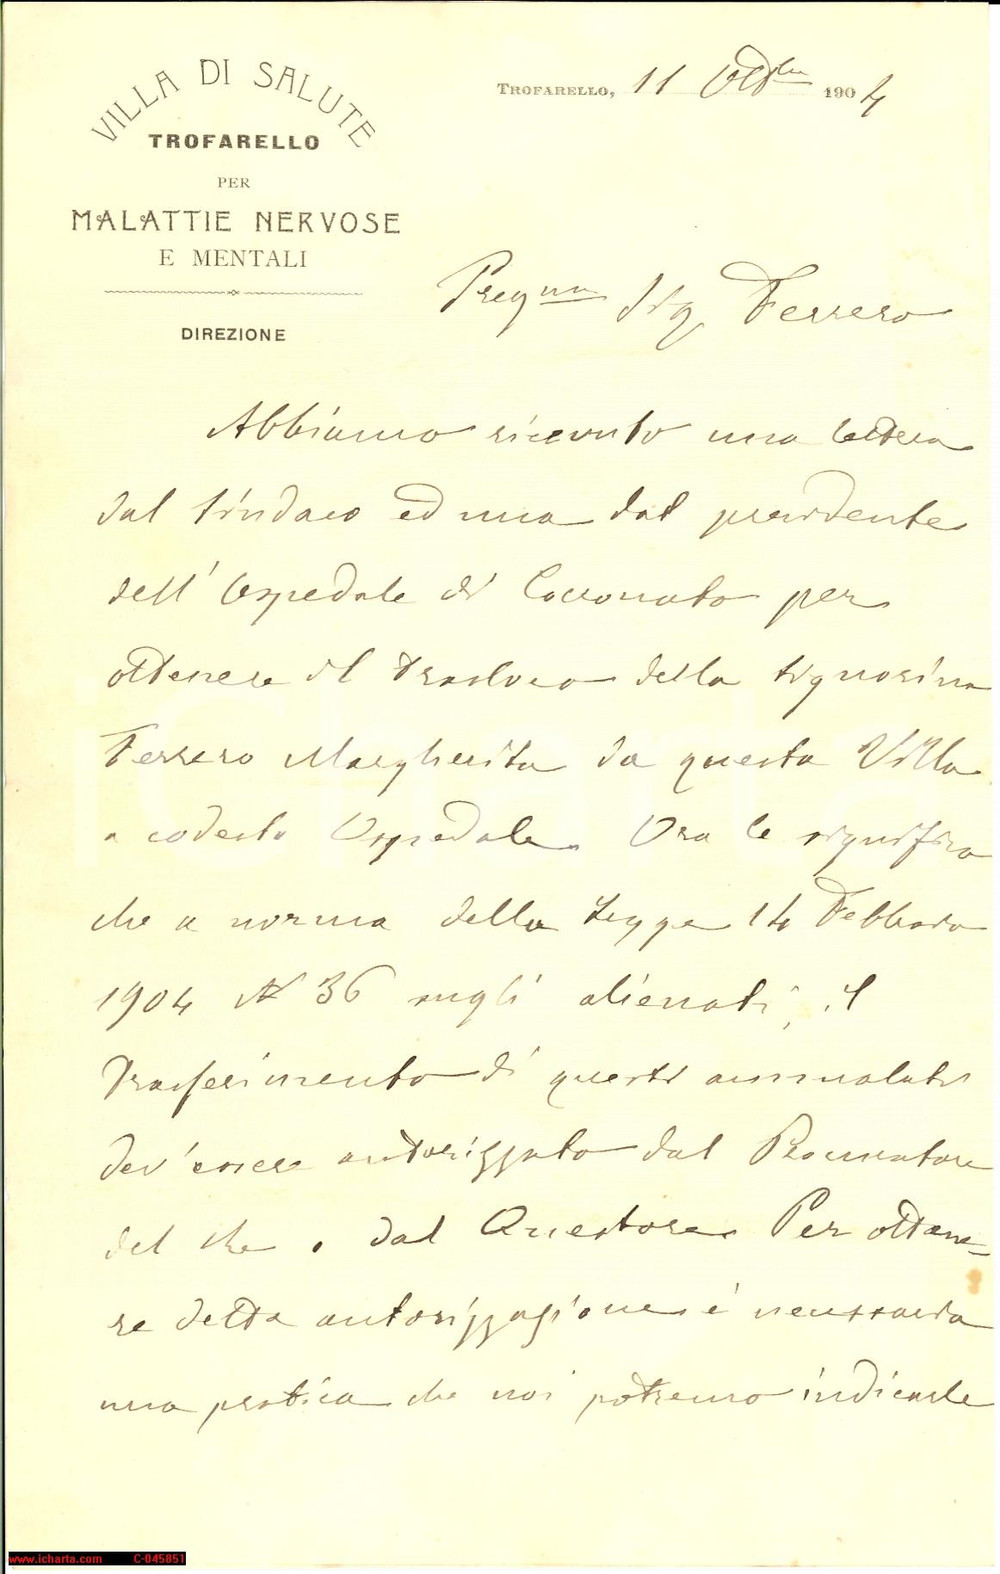 VILLA DI SALUTE
TROFARELLO
PER
MALATTIE NERVOSE
E MENTALI
DIREZIONE
TROFARELLO, 11 Ott.bre 1904
Preg.mo Sig Ferrero
Abbiamo ricevuto una lettera
dal Sindaco ed una dal presidente
dell'Ospedale di Cocconato per
ottenere il trasloco della signorina
Ferrero Margherita da questa Villa
a codesto Ospedale. Ora le significo
che a norma della Legge 14 Febbraio
1904 N 36 sugli alienati, il
trasferimento di questi ammalati
dev'essere autorizzato dal Procuratore
del Re o dal Questore. Per ottene=
re detta autorizzazione è necessaria
una pratica che noi potremo indicarle
www.icharta.com C-045851